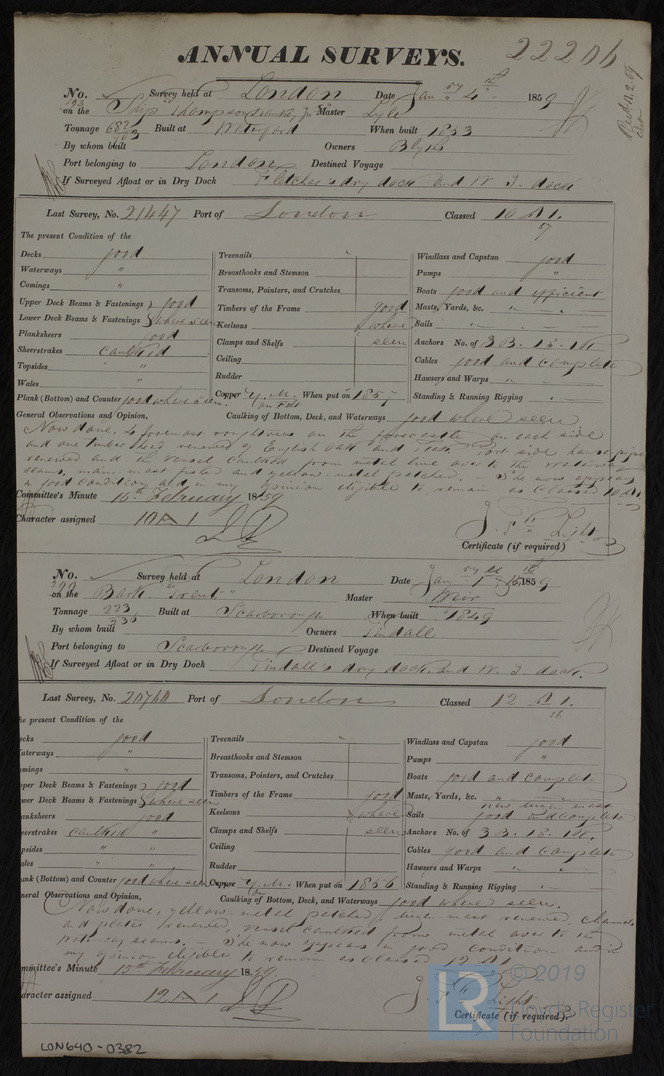 ANNUAL SURVEYS. 22206
No. 193 Survey held at London Date Jan 4 1859
on the Ship "Thompson Master Lyle
Tonnage 682 Built at Waterford When built 1853
By whom built Owners Blyth
Port belonging to London Destined Voyage
If Surveyed Afloat or in Dry Dock Fletcher's dry dock and W. I. dock
Last Survey, No. 21447 Port of London Classed 10 A 1.
7
The present Condition of the
Decks good Treenails Windlass and Capstan good
Waterways " Breasthooks and Stemson Pumps "
Comings " Transoms, Pointers, and Crutches Boats good and efficient
Upper Deck Beams & Fastenings good Timbers of the Frame good Masts, Yards, &c. "
Lower Deck Beams & Fastenings where seen Keelsons where Sails "
Planksheers good Clamps and Shelfs seen Anchors No. of 3 B. 1 S. 1 K.
Sheerstrakes caulked Ceiling Cables good and complete
Topsides " Rudder Hawsers and Warps "
Wales " Copper Y. M. on Felt When put on 1857 Standing & Running Rigging "
Plank (Bottom) and Counter good where seen
General Observations and Opinion, Caulking of Bottom, Deck, and Waterways good where seen
Now done, 4 foremost roughtrees on the forecastle on each side
and one timber head renewed of English Oak and Port side hawse pipe
renewed and the vessel caulked from metal line over to the waterway
seams, main mast fished and yellow metal patched. - She now appears
in good condition and in my opinion eligible to remain as Classed 10 A 1.
Committee's Minute 16th February 1859
Character assigned 10 A 1
Certificate (if required) Light
No. 292 Survey held at London Date Jan 1859
on the Bark "Trent" Master Weir
Tonnage 223 236 Built at Scarborough When built 1849
By whom built Owners Tindall
Port belonging to Scarborough Destined Voyage
If Surveyed Afloat or in Dry Dock Tindall's dry dock and W. I. dock.
Last Survey, No. 20740 Port of London Classed 12 A 1.
56
he present Condition of the
ecks good Treenails Windlass and Capstan good
aterways " Breasthooks and Stemson Pumps "
omings " Transoms, Pointers, and Crutches Boats good and complete
pper Deck Beams & Fastenings good Timbers of the Frame good Masts, Yards, &c. " new mizen mast
ower Deck Beams & Fastenings where seen Keelsons where Sails good and complete
anksheers good Clamps and Shelfs seen Anchors No. of 3 B. 1 S. 1 K.
eerstrakes caulked " Ceiling Cables good and complete
psides " " Rudder Hawsers and Warps "
ales " " Copper Y. M. When put on 1856 Standing & Running Rigging "
ank (Bottom) and Counter good where seen
neral Observations and Opinion, Caulking of Bottom, Deck, and Waterways good where seen,
Now done, yellow metal patched, mizen mast renewed, channels
and plates renewed, vessel caulked from metal over to the
waterway seams, - She now appears in good condition and in
my opinion eligible to remain as classed 12 A 1
mmittee's Minute 15th February 1859.
aracter assigned 12 A 1
Light
Certificate (if required).
LON640-0382
LR © 2019
Lloyd's Register
Foundation